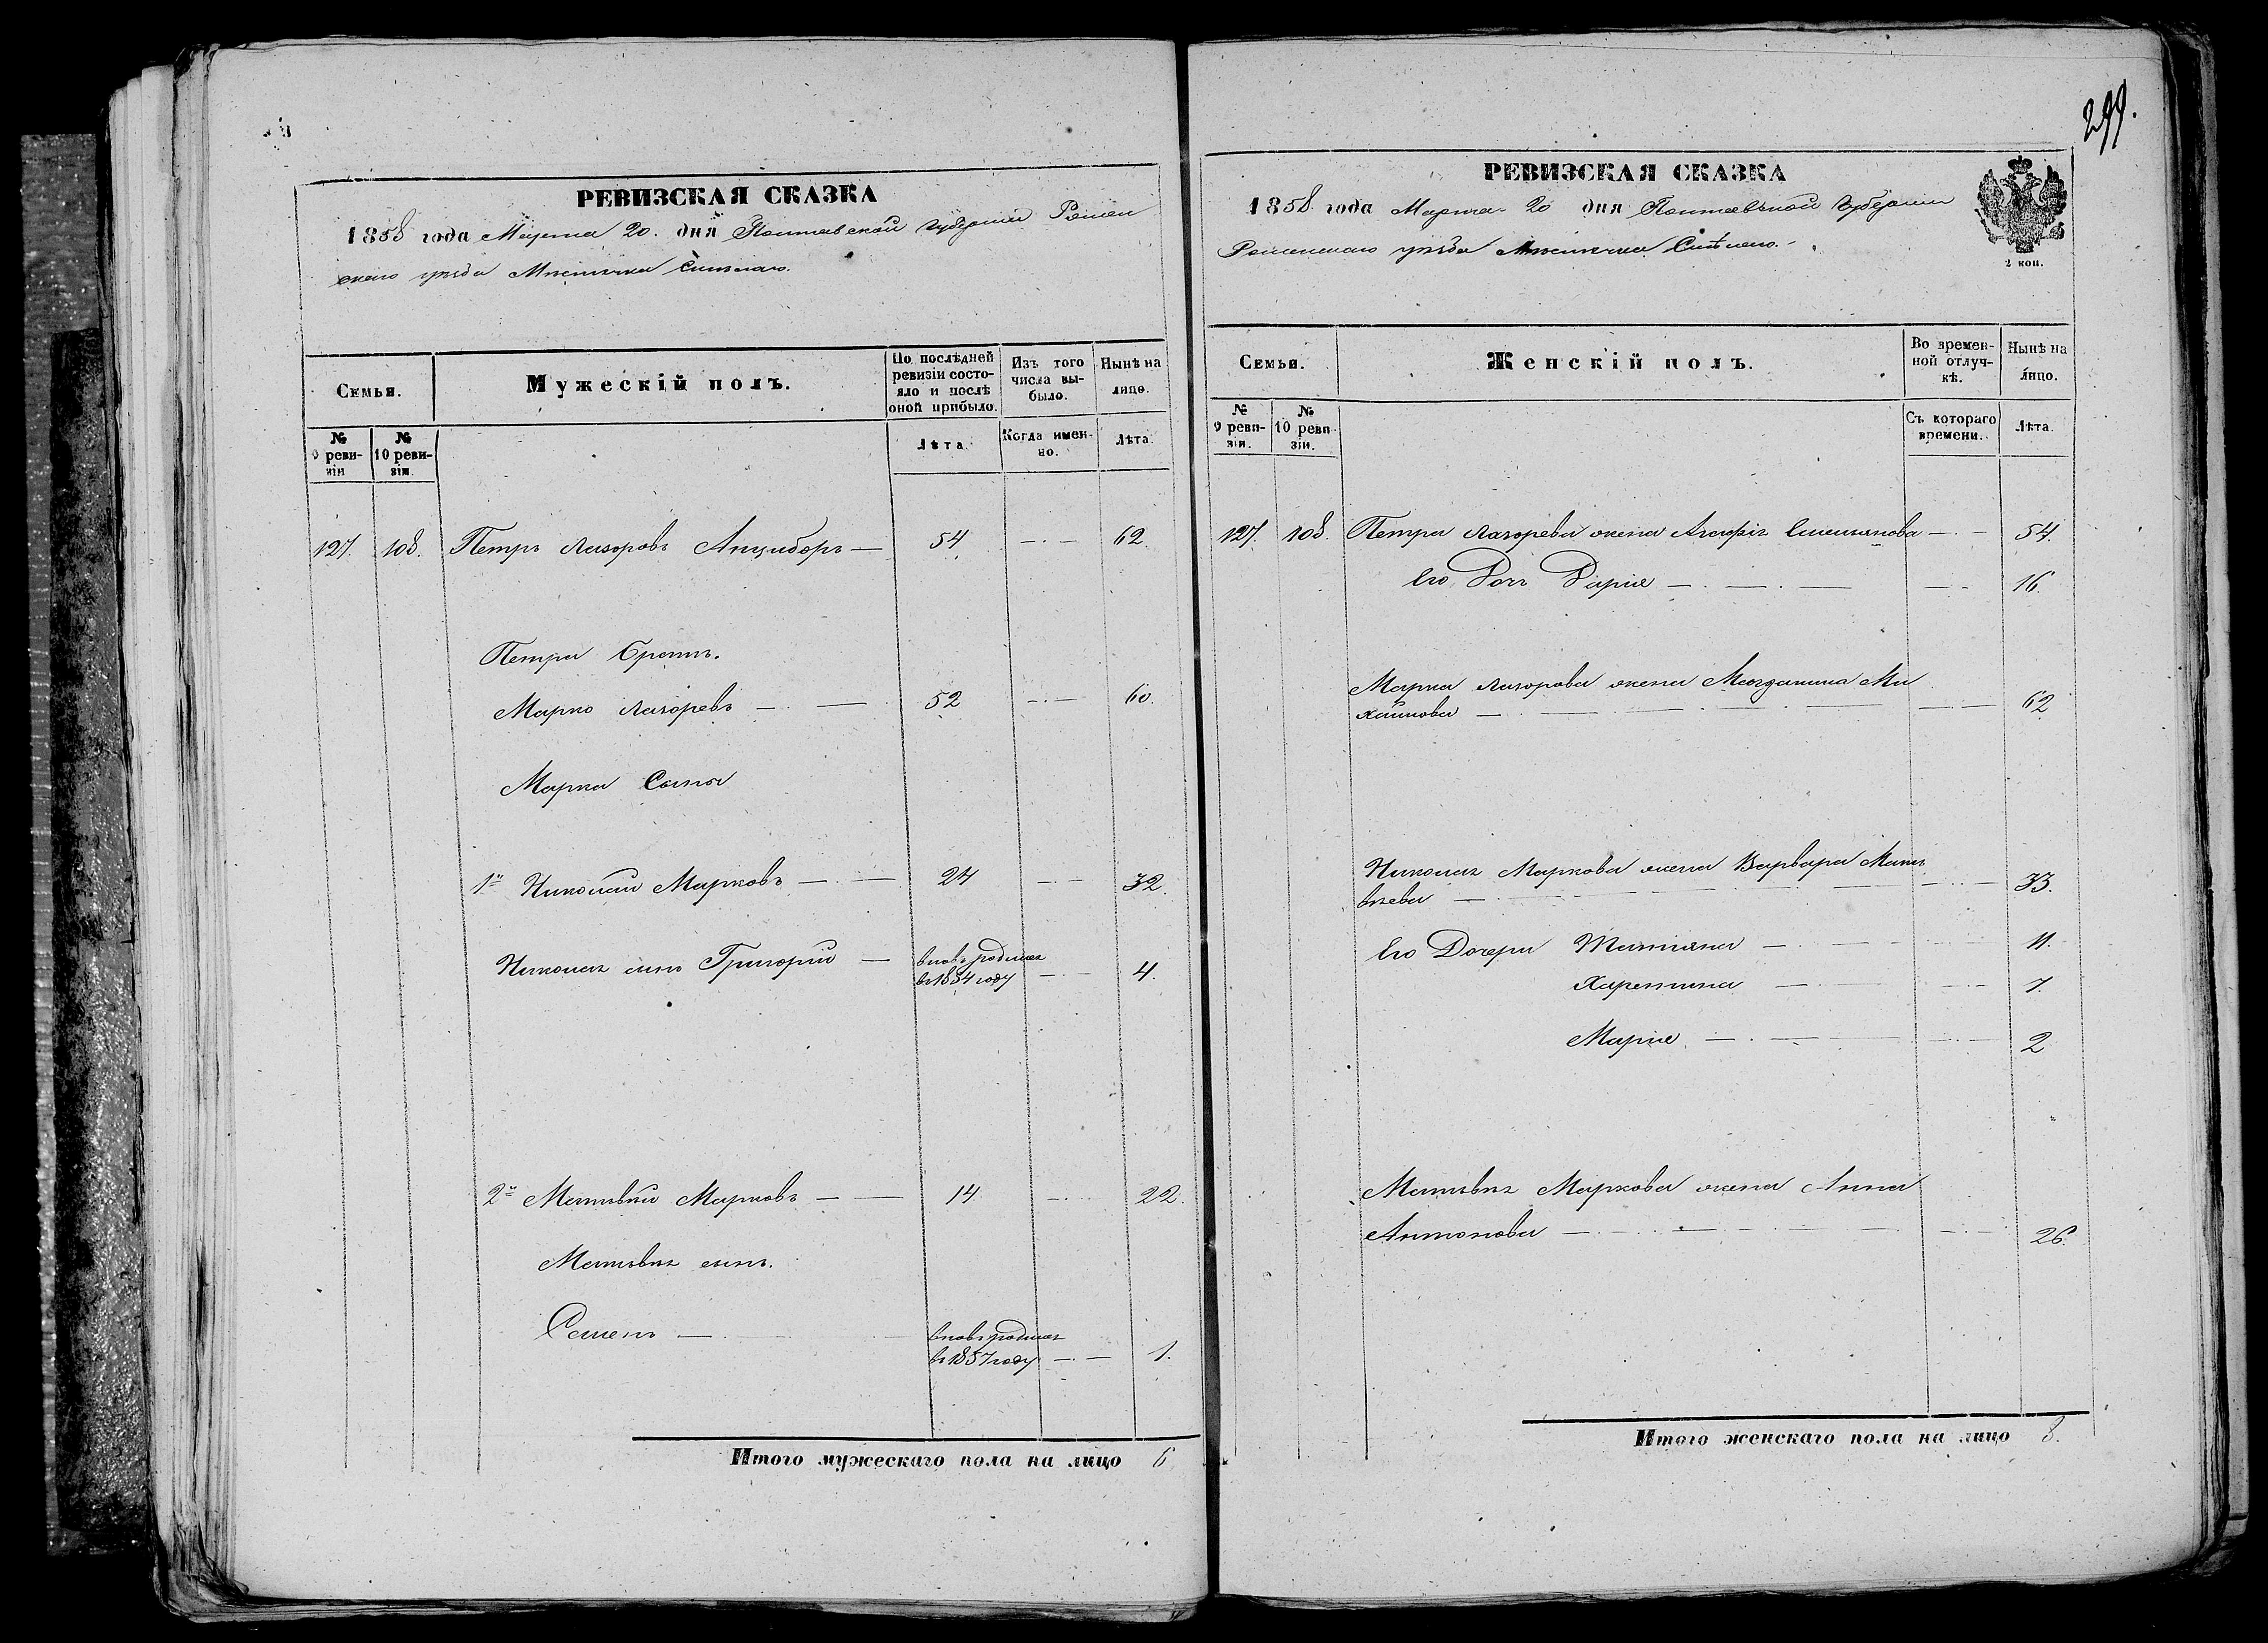 РЕВИЗСКАЯ СКАЗКА
1858 года Марта 20. дня Полтавской губерніи Ромен
скаго уѣзда Мѣстечка Смѣлаго.
Семьи.
Мужескій полъ.
По послѣдней
ревизіи состо-
яло и послѣ
оной прибыло.
Изъ того
числа вы-
было.
Нынѣ на
лицо.
№
9 реви-
зіи
№
10 реви-
зіи.
Лѣта.
Когда имен-
но.
Лѣта.
127. 108. Петръ Лазоровъ Анцыборъ — 54 — · — 62.
Петра братъ.
Марко Лазоревъ — · — 52 — · — 60.
Марка Сыны
1й Николай Марковъ — · — 24 — · — 32.
Николая сынъ Григорій — вновь родился
въ 1854 году — · — 4.
2й Матвѣй Марковъ — — 14 — · — 22.
Матвѣя сынъ.
Семенъ — · — вновь родился
въ 1857 году — · — 1.
Итого мужескаго пола на лицо 6
299.
РЕВИЗСКАЯ СКАЗКА
1858 года Марта 20 дня Полтавской губерніи
Роменскаго уѣзда Мѣстечка Смѣлаго.
2 коп.
Семьи.
Женскій полъ.
Во времен-
ной отлуч-
кѣ.
Нынѣ на
лицо.
№
9 реви-
зіи.
№
10 реви-
зіи.
Съ котораго
времени.
Лѣта.
127. 108. Петра Лазорева жена Агафія — · — 54.
Его Дочь Дарія — · — · — — 16.
Марка Лазорова жена Магдалина Ми
хайлова — · — — · — 62
Николая Маркова жена Варвара Матъ
вѣева — · — — · — 33.
Его Дочери Татіяна — · — 11.
Харитина — · — — · — 7.
Марія — · — — · — 2
Матвѣя Маркова жена Анна
Антонова — · — · — — · — 26.
Итого женскаго пола на лицо 8.